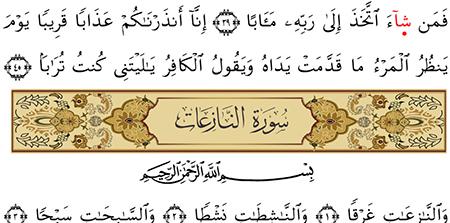 فَمَن شَآءَ ٱتَّخَذَ إِلَىٰ رَبِّهِۦ مَـَٔابًا ۝٣٩ إِنَّآ أَنذَرْنَـٰكُمْ عَذَابًا قَرِيبًا يَوْمَ
يَنظُرُ ٱلْمَرْءُ مَا قَدَّمَتْ يَدَاهُ وَيَقُولُ ٱلْكَافِرُ يَـٰلَيْتَنِى كُنتُ تُرَٰبًۢا ۝٤٠
سُورَةُ النَّازِعَاتِ
بِسْمِ ٱللَّهِ ٱلرَّحْمَـٰنِ ٱلرَّحِيمِ
وَٱلنَّـٰزِعَـٰتِ غَرْقًا ۝١ وَٱلنَّـٰشِطَـٰتِ نَشْطًا ۝٢ وَٱلسَّـٰبِحَـٰتِ سَبْحًا ۝٣